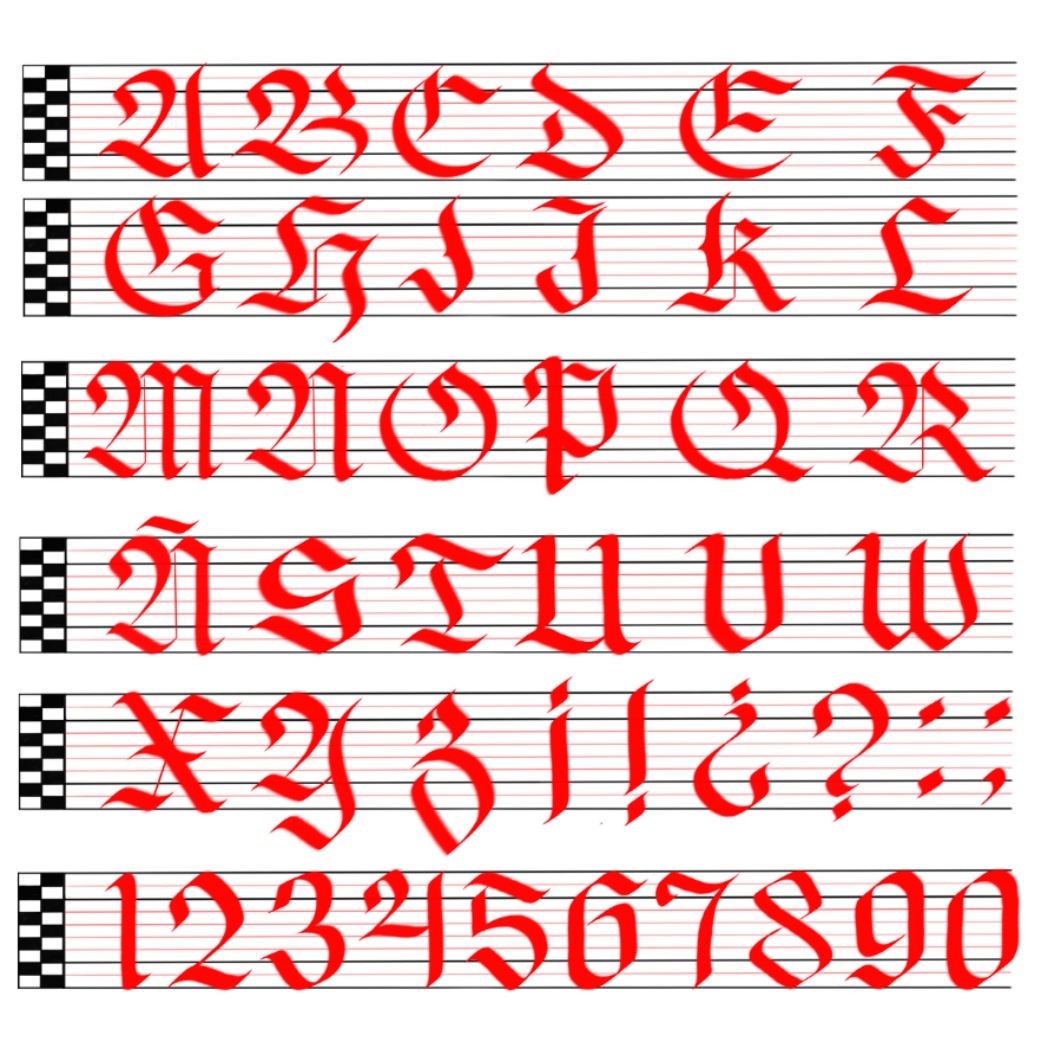 A B C D E F
G H I J K L
M N O P Q R
Ñ S T U V W
X Y Z ¡ ! ¿ ? : ;
1 2 3 4 5 6 7 8 9 0